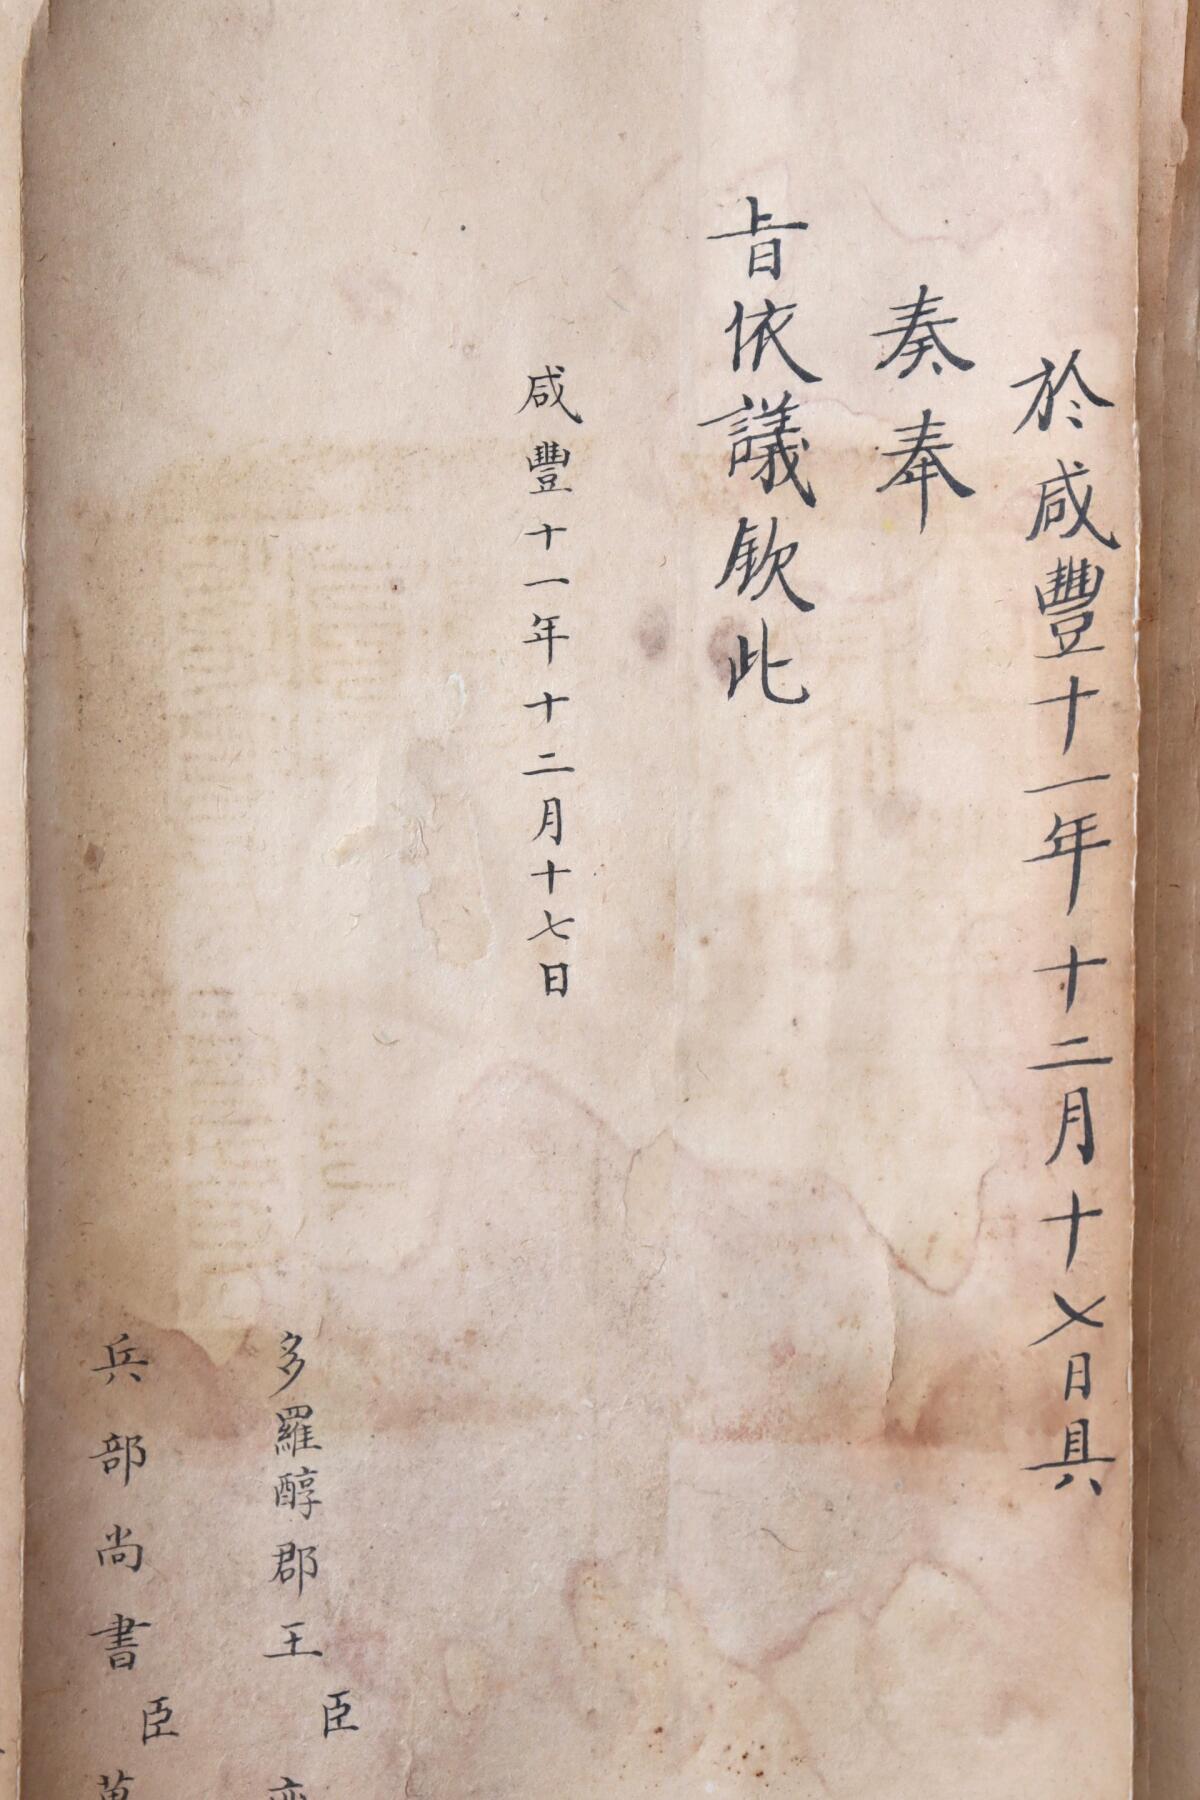 於咸豐十一年十二月十七日具
奏奉
旨依議欽此
咸豐十一年十二月十七日
多羅醇郡王臣
兵部尚書臣